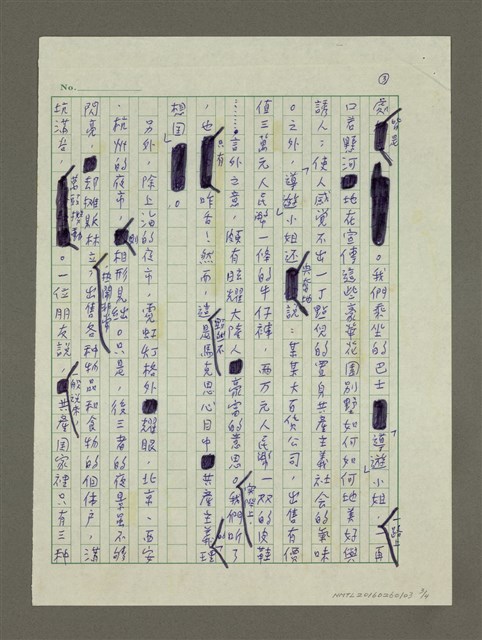 No.
③
處皆是。我們乘坐的巴士「導遊小姐」,一路上一再
口若懸河地在宣傳這些豪華花園別墅如何如何地美好與
誘人;使人感覺不出一丁點兒的置身共產主義社會的氣味
。之外,「導遊小姐」還興奮地說:某某大百貨公司,出售有價
值三萬元人民幣一條的牛仔褲,兩萬元人民幣一双的皮鞋
……言外之意,頗有眩耀大陸人豪富的意思。我們聽了
,也只有咋舌!然而,這是馬克思心目中共產主義理
想国。
另外,除上海的夜市,霓虹灯格外耀眼,北京、西安
、杭州的夜市,則相形見絀。只是,後三者的夜景虽不够
閃亮,却攤販林立,出售各种物品和食物的個体户,滿
坑滿谷,。一位朋友說,共產国家裡只有三种
NMTL20160260103 3/4